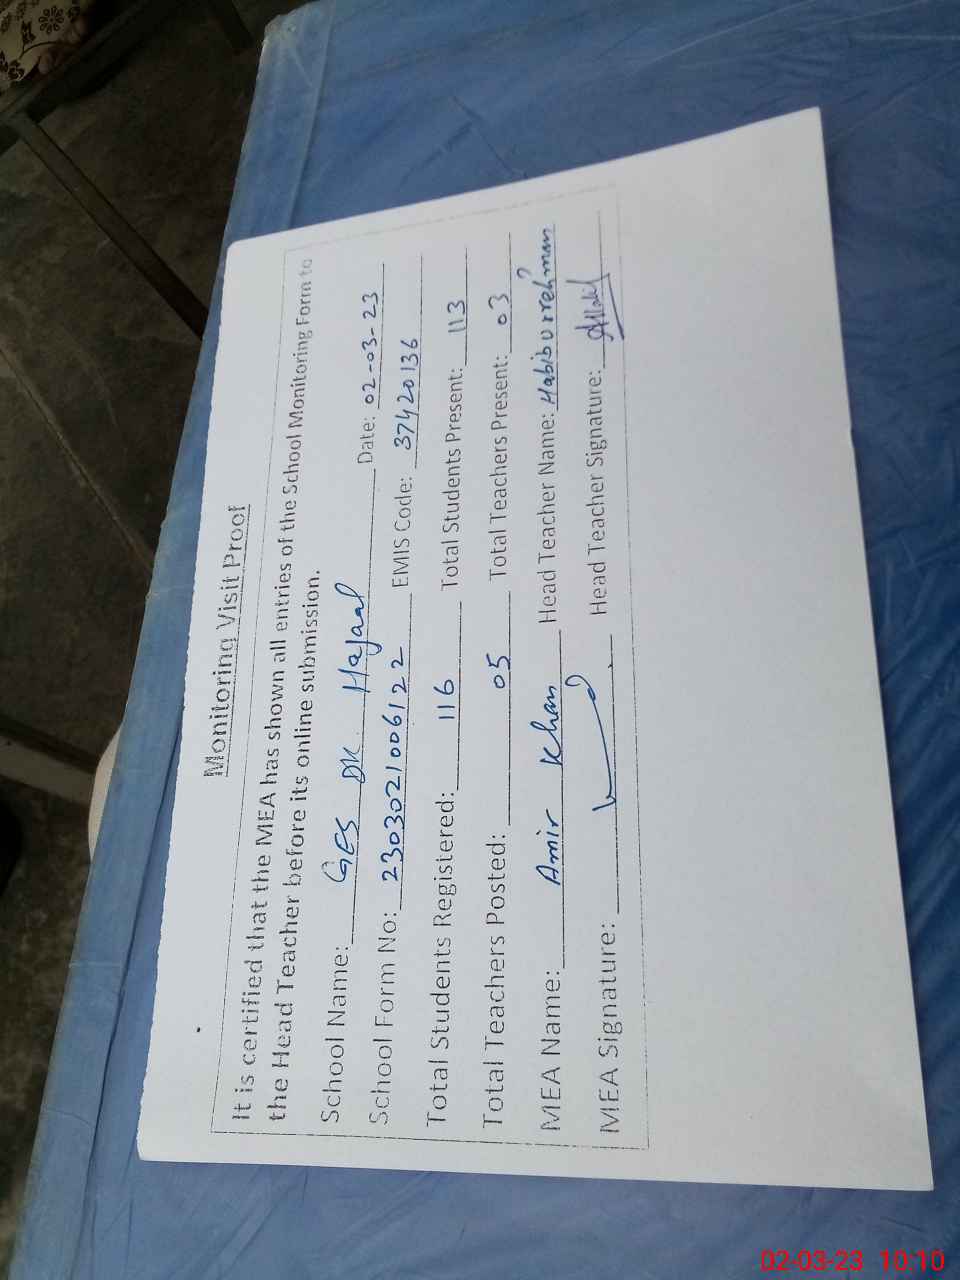 Monitoring Visit Proof
It is certified that the MEA has shown all entries of the School Monitoring Form to
the Head Teacher before its online submission.
School Name: GES DK Hajaal Date: 02-03-23
School Form No: 2303021006122 EMIS Code: 37420136
Total Students Registered: 116 Total Students Present: 113
Total Teachers Posted: 05 Total Teachers Present: 03
MEA Name: Amir Khan Head Teacher Name: Habiburrehman
MEA Signature: Head Teacher Signature:
02-03-23 10:10